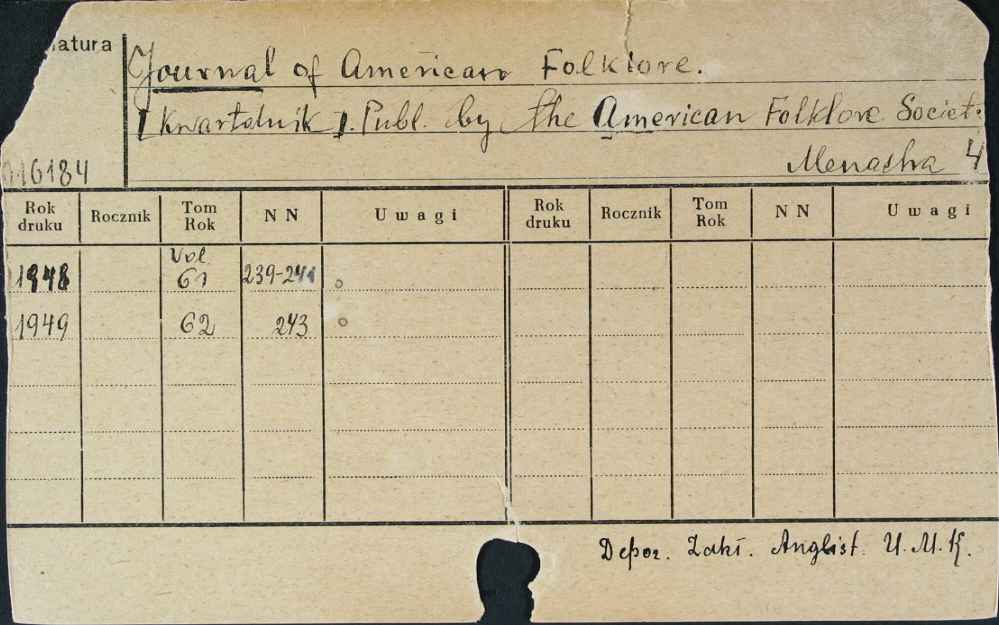 atura
Journal of American Folklore.
[Kwartalnik]. Publ. by the American Folklore Societ.
Menasha 4
016184
Rok druku Rocznik Tom Rok NN Uwagi Rok druku Rocznik Tom Rok NN Uwagi
1948 Vol. 61 239-241
1949 62 243
Depoz. Zakł. Anglist. U.M.K.